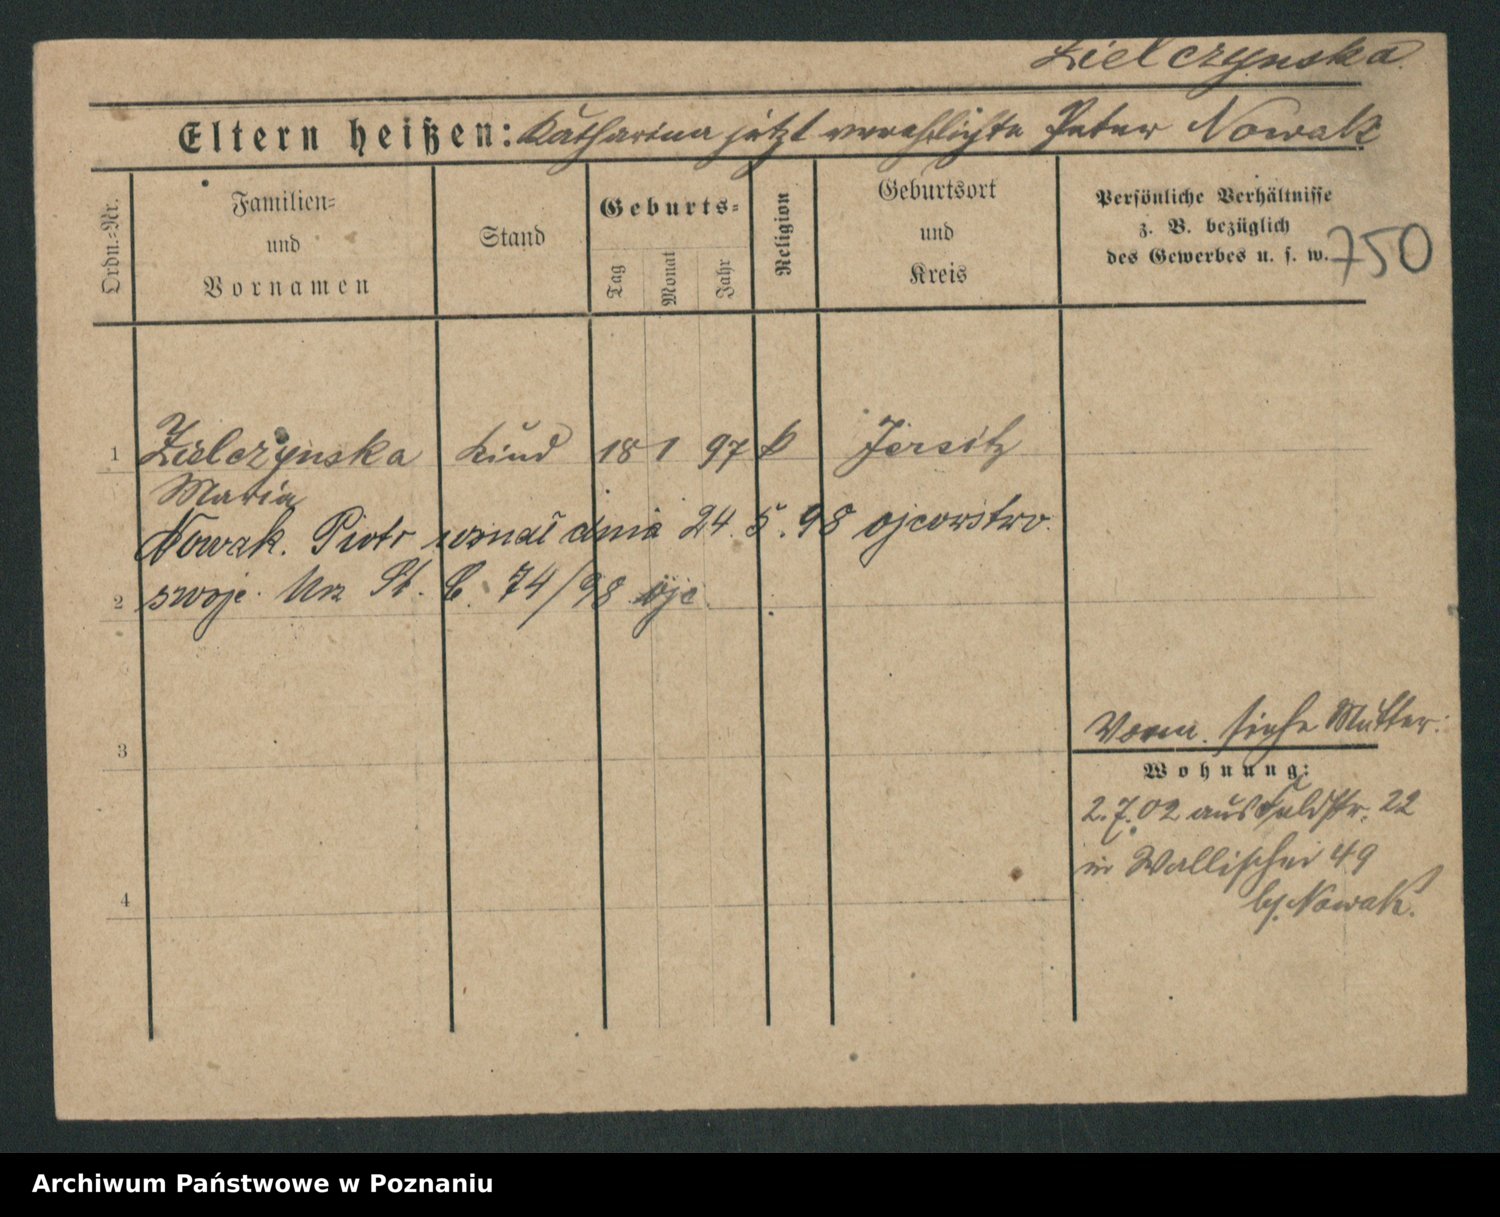 Zielczynska.
Eltern heißen: Katharina jetzt verehelichte Peter Nowak
Ordn.-Nr.
Familien- und Vornamen
Stand
Geburts-
Tag
Monat
Jahr
Religion
Geburtsort und Kreis
Persönliche Verhältnisse
z. B. bezüglich
des Gewerbes u. s. w.
750
1 Zielczynska Kind 18 1 97 k Jersitz
Maria
Nowak. Piotr uznał dnia 24. 5. 98 ojcowstwo
2 swoje. Urz St. C. 74/98 ojc
3
Vorm. siehe Mutter.
Wohnung:
2.7.02 aus Feldstr. 22
in Wallischei 49
4
b/ Nowak.
Archiwum Państwowe w Poznaniu